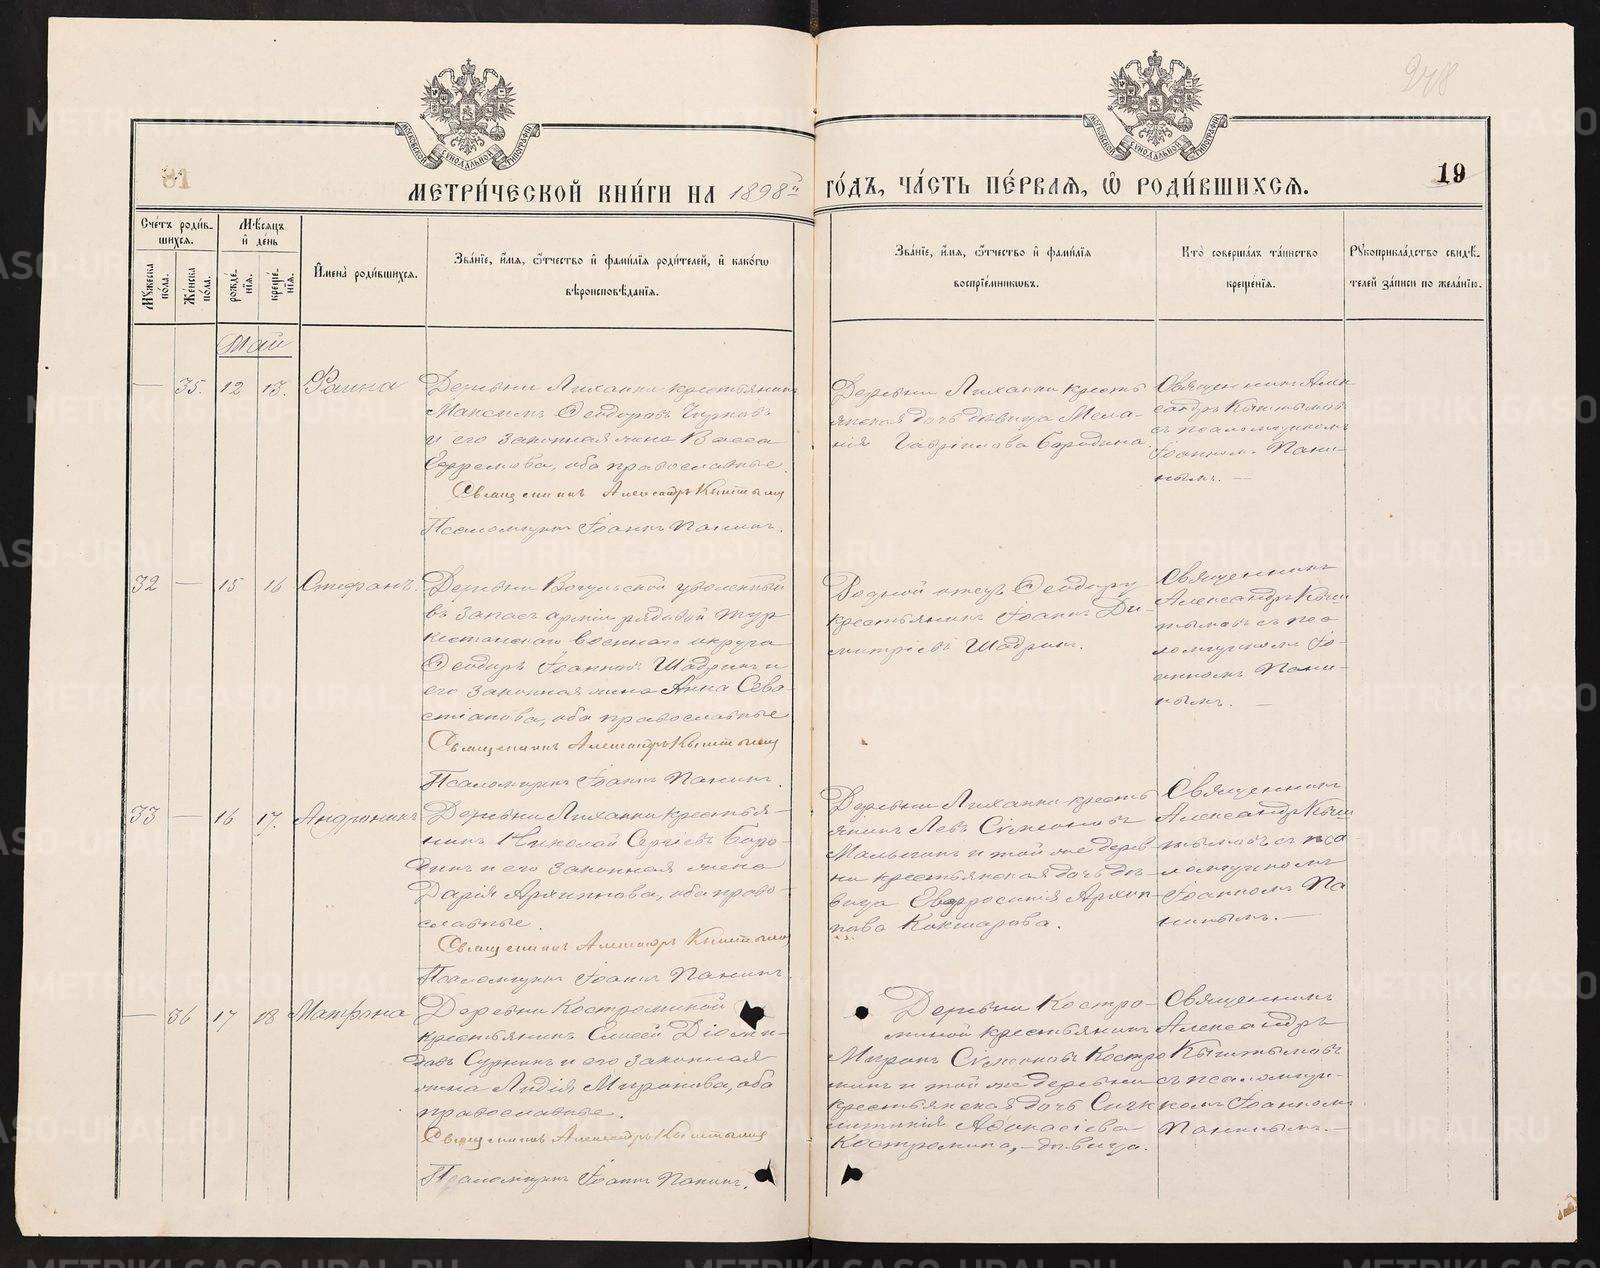 248
МОСКОВСКОЙ СѴНОДАЛЬНОЙ ТИПОГРАФІИ
МОСКОВСКОЙ СѴНОДАЛЬНОЙ ТИПОГРАФІИ
81
19
МЕТРИ́ЧЕСКОЙ КНИ́ГИ НА 1898й
ГО́ДЪ, ЧА́СТЬ ПЕ́РВАѦ, Ѽ РОДИ́ВШИХСѦ.
Сче́тъ роди́в-
шихсѧ.
Мѣ́сѧцъ
и҆ де́нь
Мꙋ́жеска по́ла.
Же́нска по́ла.
рожде́-нїѧ.
креще́-нїѧ.
И҆мена̀ роди́вшихсѧ.
Зва́нїе, и҆́мѧ, ѻ҆́тчество и҆ фами́лїѧ роди́телей, и҆ како́гѡ
вѣроисповѣ́данїѧ.
Зва́нїе, и҆́мѧ, ѻ҆́тчество и҆ фами́лїѧ
воспрїе́мникѡвъ.
Кто̀ соверша́лъ та́инство
креще́нїѧ.
Рꙋкоприкла́дство свидѣ́-
телей за́писи по жела́нїю.
Май
— 35. 12 13. Фаина
Деревни Лиханки крестьянинъ
Максимъ Ѳеодоровъ Чурковъ
и его законная жена Васса
Ефремова, оба православные.
Священникъ Александръ Кыштымовъ
Псаломщикъ Іоаннъ Панинъ.
Деревни Лиханки кресть
янская дочь девица Мела-
нія Гавріилова Бородина.
Священникъ Алек
сандръ Кыштымовъ
съ псаломщикомъ
Іоанномъ Пани-
нымъ. —
32 — 15 16 Стефанъ.
Деревни Вогульской уволенный
въ запасъ арміи рядовой Тур
кестанскаго военнаго округа
Ѳеодоръ Іоанновъ Шадринъ и
его законная жена Анна Сева-
стіанова, оба православные
Священникъ Александръ Кыштымовъ
Псаломщикъ Іоаннъ Панинъ.
Родной отецъ Ѳеодору
крестьянинъ Іоаннъ Ди-
митріевъ Шадринъ.
Священникъ
Александръ Кыш
тымовъ съ пса
ломщикомъ Іо-
анномъ Пани-
нымъ. —
33 — 16 17. Андроникъ
Деревни Лиханки крестья-
нинъ Николай Сергіевъ Боро-
динъ и его законная жена
Дарія Архиппова, оба право-
славные.
Священникъ Александръ Кыштымовъ
Псаломщикъ Іоаннъ Панинъ.
Деревни Лиханки кресть
янинъ Левъ Сѵмеоновъ
Малыгинъ и той же дерев
ни крестьянская дочь дѣ-
вица Евфросинія Архип
пова Кокшарова.
Священникъ
Александръ Кыш
тымовъ съ пса
ломщикомъ
Іоанномъ Па
нинымъ. —
— 36 17 18 Матрона
Деревни Костроминой
крестьянинъ Елисей Діоми-
довъ Суринъ и его законная
жена Лидія Миронова, оба
православные.
Священникъ Александръ Кыштымовъ
Псаломщикъ Іоаннъ Панинъ.
Деревни Костро-
миной крестьянинъ
Миронъ Сѵмеоновъ Костро
минъ и той же деревни
крестьянская дочь Синк
литикія Аѳанасіева
Костромина, – дѣвица.
Священникъ
Александръ
Кыштымовъ
съ псаломщи-
комъ Іоанномъ
Панинымъ. —